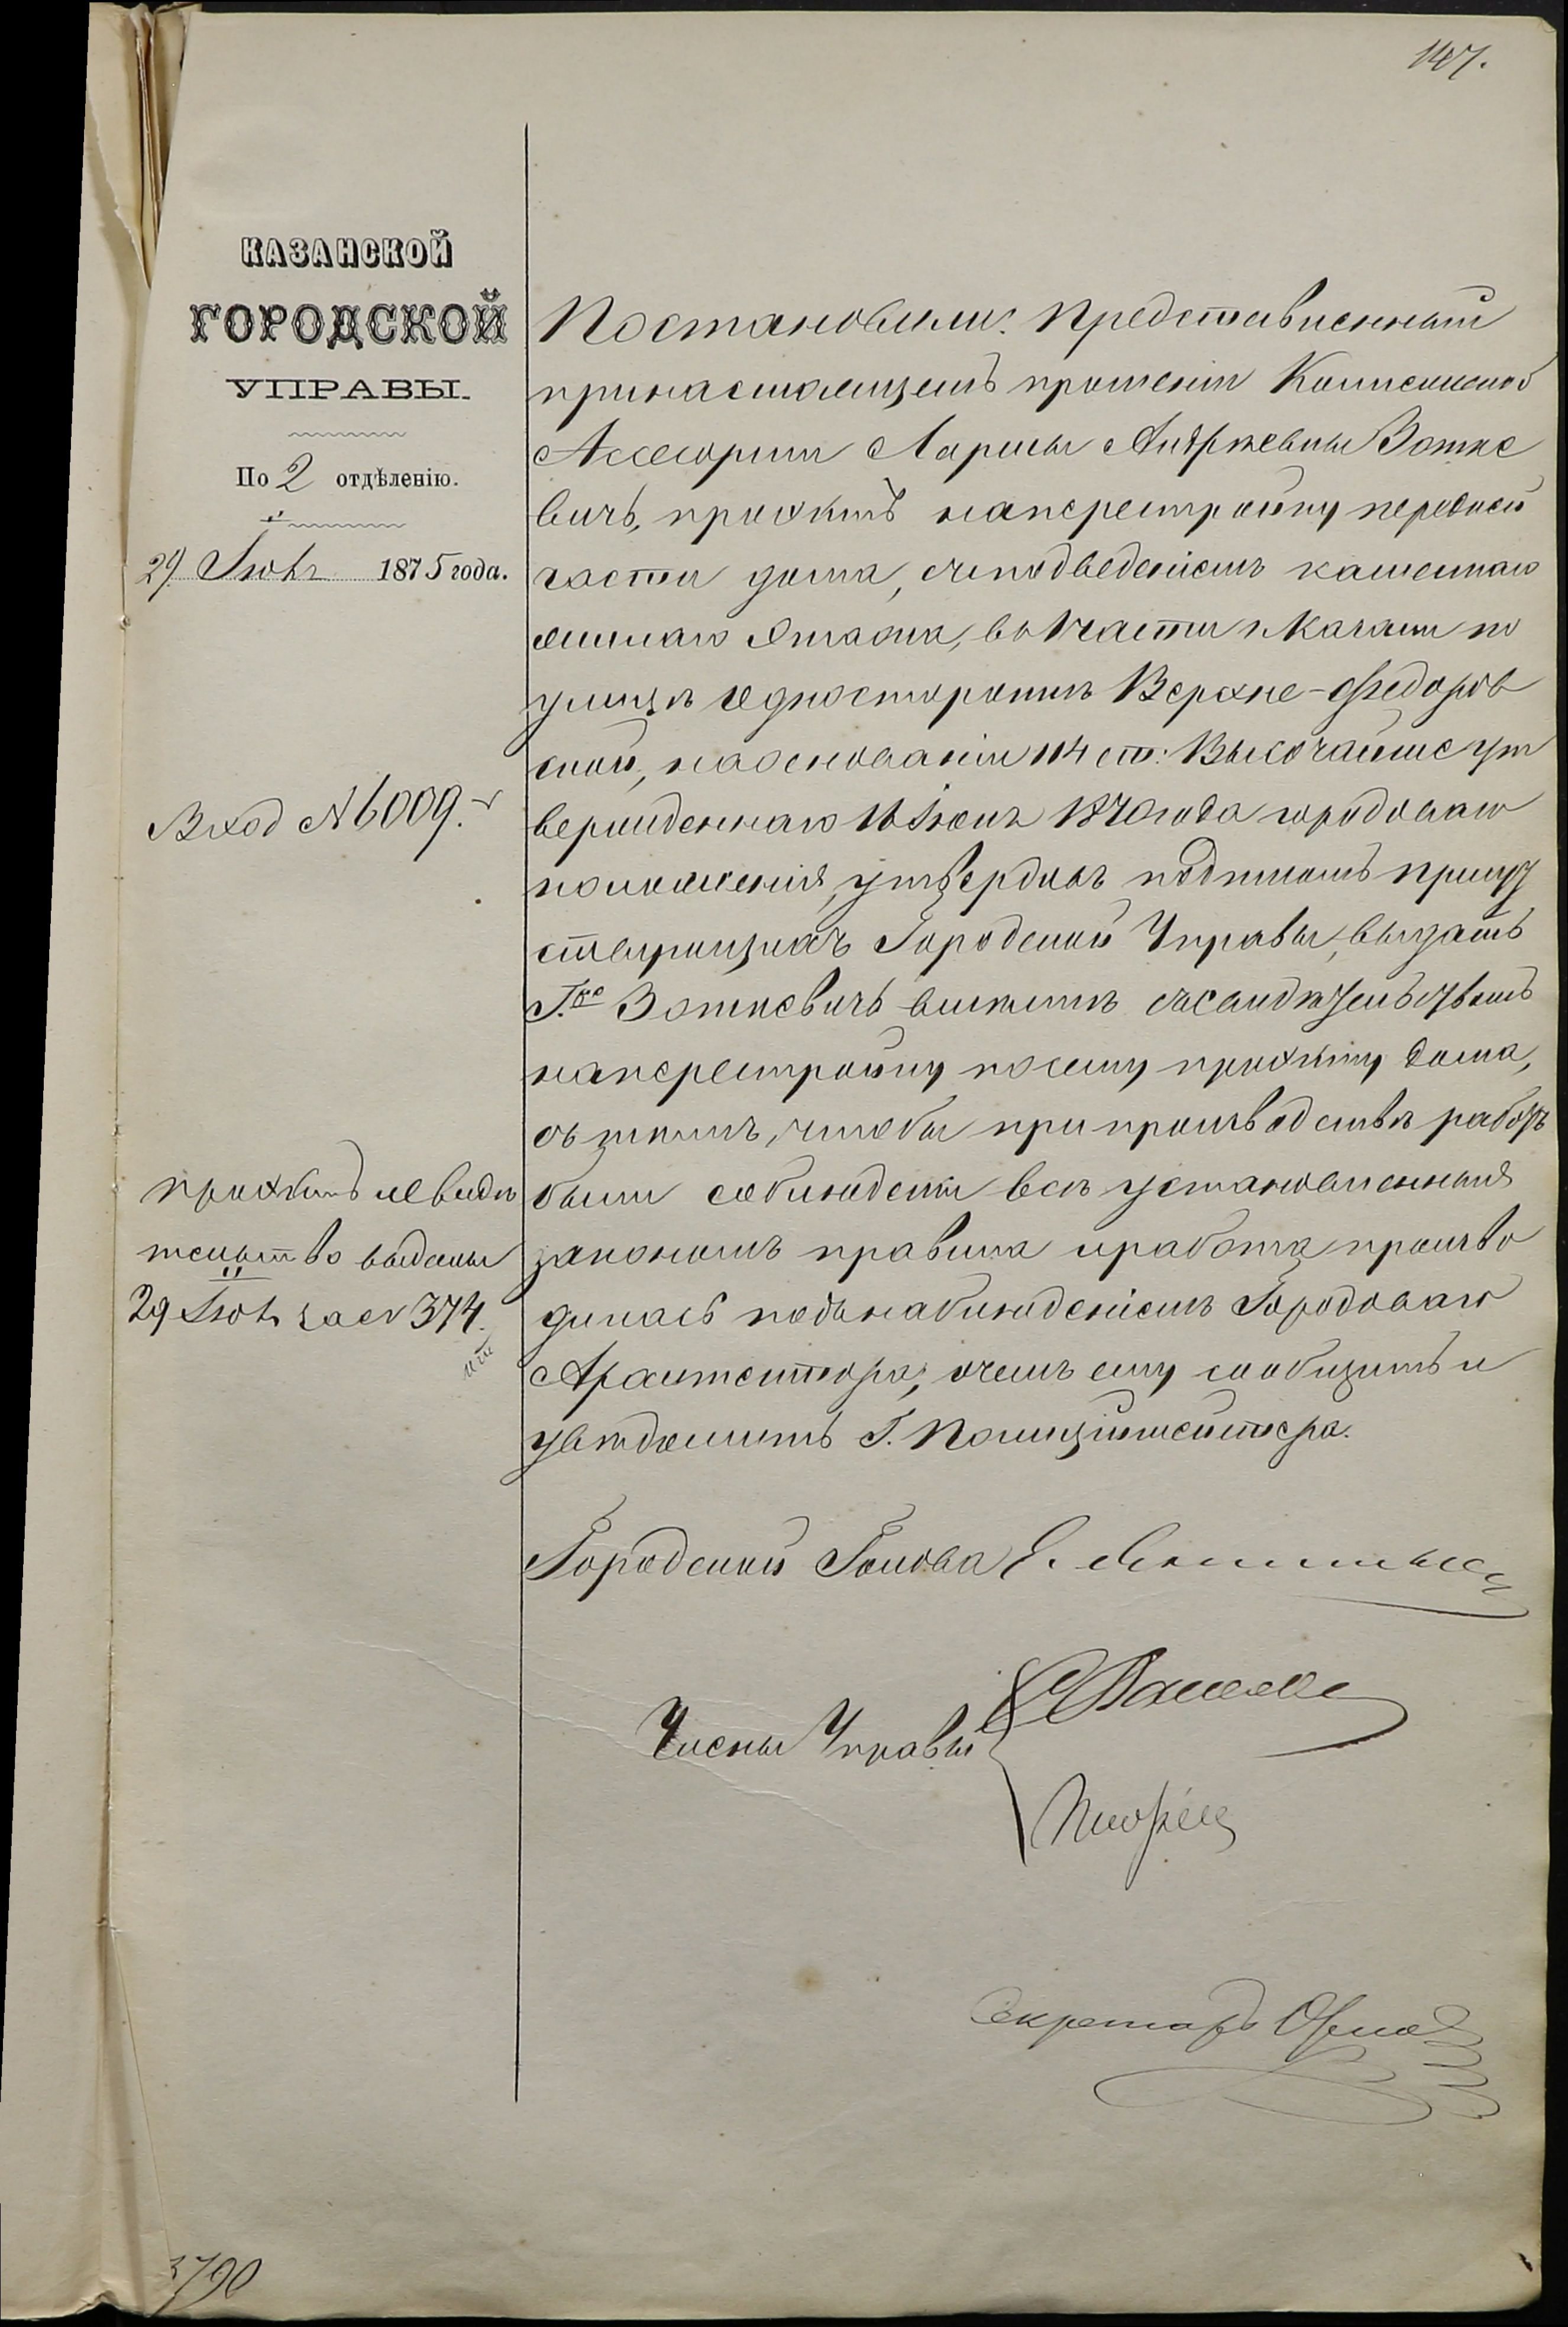 147.
КАЗАНСКОЙ
ГОРОДСКОЙ
УПРАВЫ.
По 2 отдѣленію.
29 Іюля 1875 года.
Вход № 6009.
проэктъ и свидѣ
тельство выданы
29 Іюля за № 374.
Постановили: Представленный
при настоящемъ прошеніи Коллежской
Ассесорши Ларисы Андреевны Вотке
вичъ, проэктъ на перестройку передней
части дома, съ подведеніемъ каменнаго
нижняго этажа, въ 1 части г. Казани по
улицѣ односторонней Верхне-Федоров
ской, на основаніи 114 ст: Высочайше ут
вержденнаго 16 Іюня 1870 года городоваго
положенія, утвердивъ подписомъ присут
ствующихъ Городской Управы, выдать
Г.жѣ Воткевичъ вмѣстѣ съ свидѣтельствомъ
на перестройку по сему проэкту дома,
съ тѣмъ, чтобы при производствѣ работъ
были соблюдены всѣ установленныя
закономъ правила и работа произво
дилась подъ наблюденіемъ Городоваго
Архитектора, о чемъ ему сообщить и
увѣдомить Г. Полицiймейстера.
Городской Голова Е.
Члены Управы
Секретарь
3790